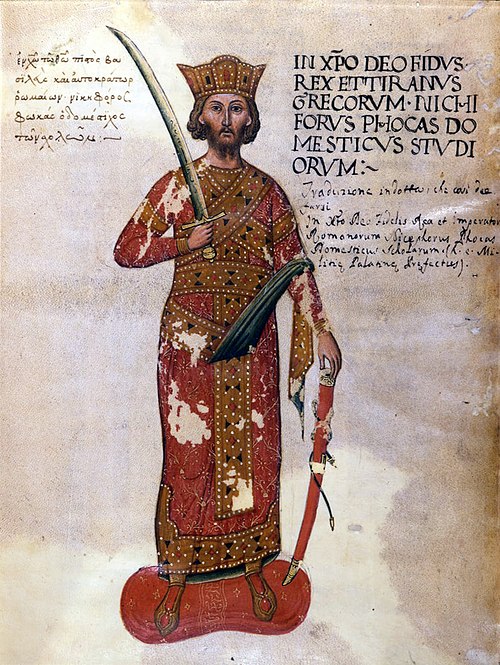 ἐν χω τω θω πιστὸς βα
σιλεὺς καὶ αυτοκράτωρ
ρωμαίων νικηφόρος
φωκας ὁ δομέστιχος
IN XP̃O DEO FIDUS·
REX ET TIRANUS
GRECORVM · NICHI
FORVS PHOCAS DO
MESTICVS STVDI
ORVM:~
Traduzione indotta; che così dee
farsi
In Xto Deo Fidelis Rex et Imperator
Romanorum Nicephorus Phocas
Domesticus Scholarum (h. e. Mi-
litiæ Palatinæ Præfectus).